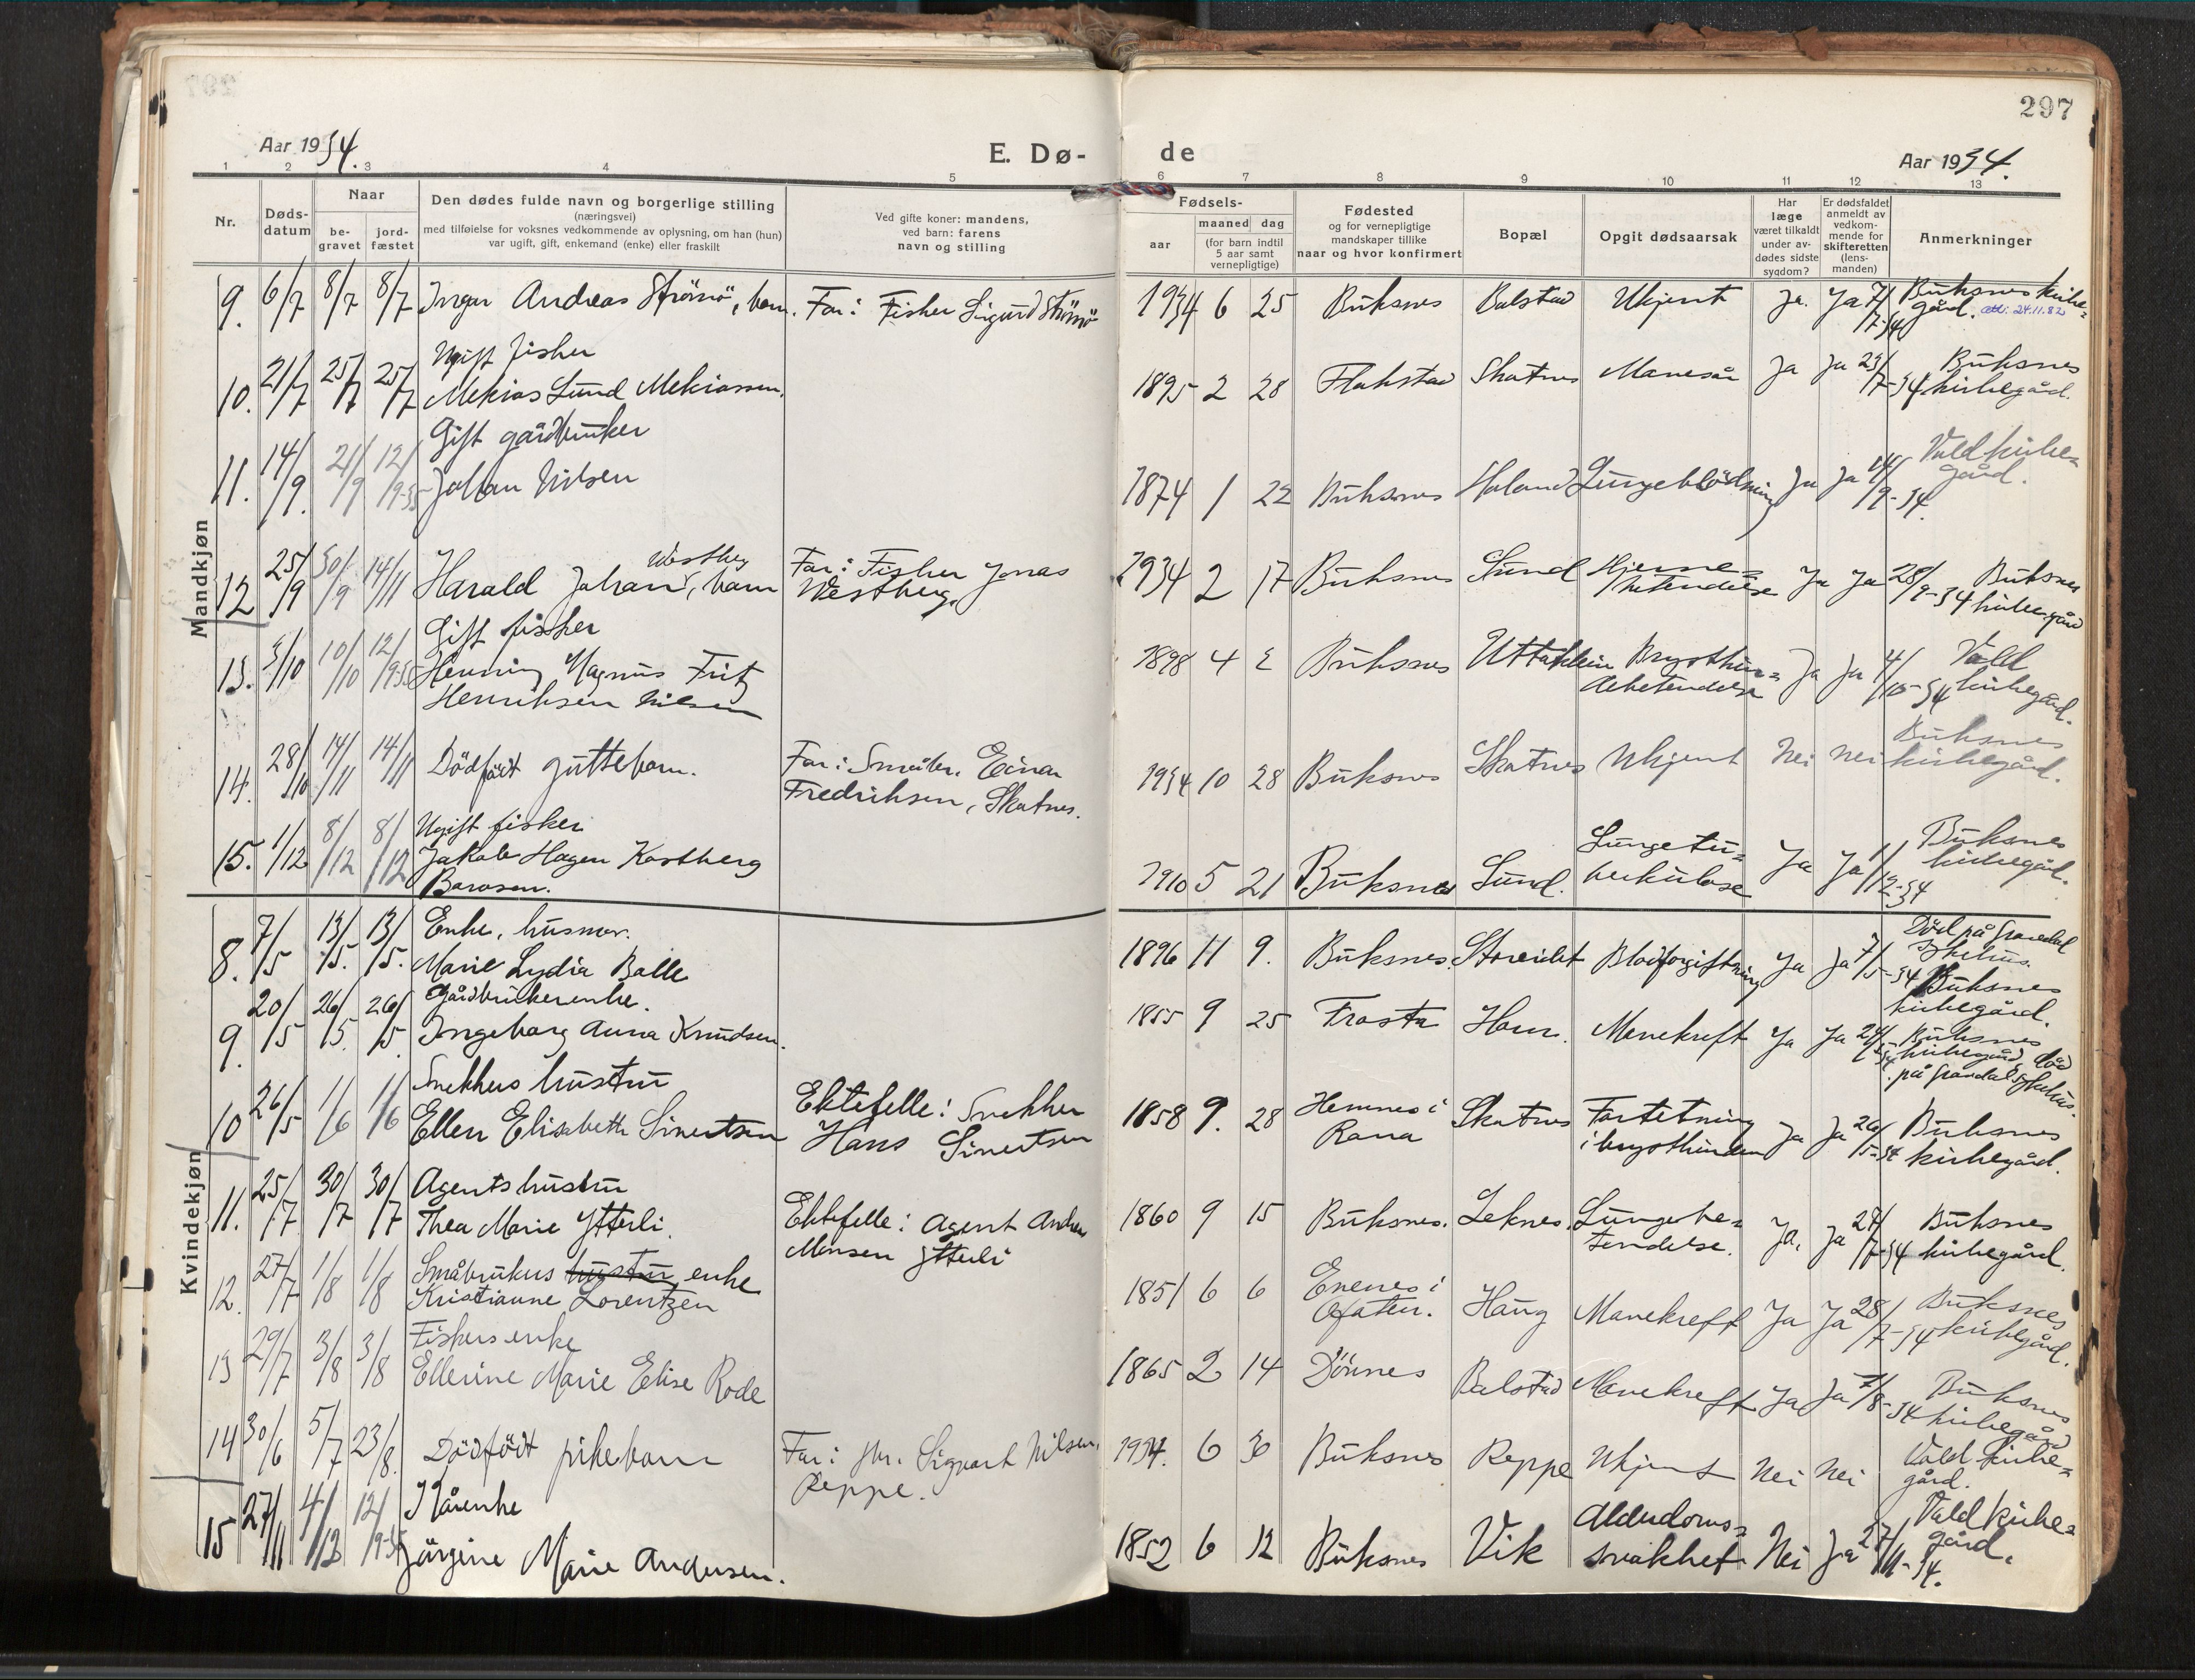 297
Aar 1934.
E. Dø-
de
Aar 1934.
1 2 3 4 5 6 7 8 9 10 11 12 13
Nr.
Døds-
datum
Naar
be-
gravet
jord-
fæstet
Den dødes fulde navn og borgerlige stilling
(næringsvei)
med tilføielse for voksnes vedkommende av oplysning, om han (hun)
var ugift, gift, enkemand (enke) eller fraskilt
Ved gifte koner: mandens,
ved barn: farens
navn og stilling
Fødsels-
aar
maaned dag
(for barn indtil
5 aar samt
vernepligtige)
Fødested
og for vernepligtige
mandskaper tillike
naar og hvor konfirmert
Bopæl
Opgit dødsaarsak
Har
læge
været tilkaldt
under av-
dødes sidste
sygdom?
Er dødsfaldet
anmeldt av
vedkom-
mende for
skifteretten
(lens-
manden)
Anmerkninger
Mandkjøn
9. 6/7 8/7 8/7 Ingar Andreas Strömö, barn. Far: Fisker Sigurd Strömö 1934 6 25 Buksnes Balstad Ukjent Ja. Ja 7/7-34 Buksnes kirke=
gård. 24.11.82
Ugift fisker
10. 21/7 25/7 25/7 Mekias Lund Mekiassen. 1895 2 28 Flakstad Skatnes Mavesår Ja Ja 23/7-34 Buksnes
kirkegård.
Gift gårdbruker
11. 14/9. 21/9 12/1 1935 Johan Nilsen 1874 1 22 Buksnes Holand Lungeblödning Ja Ja 14/9-34. Vald kirke=
gård.
Westberg
12 25/9 30/9 14/11 Harald Johan, barn Far: Fisker Jonas
Westberg. 1934 2 17 Buksnes Sund Hjerne=
betendelse Ja Ja 28/9-34 Buksnes
kirkegård
Gift fisker
13. 3/10 10/10 12/1 1935 Henning Magnus Fritz
Henriksen Nilsen 1898 4 2 Buksnes Uttakleiv Brysthin=
debetendelse Ja Ja 4/10-34 Vald
kirkegård.
14. 28/10 14/11 14/11 Dödfödt guttebarn. Far: Småbr. Einar
Fredriksen, Skatnes. 1934 10 28 Buksnes Skatnes Ukjent Nei Nei Buksnes
kirkegård.
Ugift fisker
15. 1/12 8/12 8/12 Jakob Hagen Kastberg
Barosen. 1910 5 21 Buksnes Sund. Lungetu=
berkulose Ja Ja 1/12-34 Buksnes
kirkegård.
Kvindekjøn
Enke, husmor.
8. 7/5 13/5. 13/5. Marie Lydia Balle 1896 11 9. Buksnes. Storeidet Blodforgiftning Ja Ja 7/5-34 Död på Gravdal
sykehus.
Buksnes
kirkegård.
Gårdbrukerenke.
9. 20/5 26/5. 26/5 Ingeborg Anna Knudsen. 1855 9 25 Frosta Horn. Mavekreft Ja Ja 24/5-34 Buksnes
kirkegård, död
på Gravdal sykehus.
Snekkers hustru
10 26/5 1/6 1/6 Ellen Elisabeth Sivertsen Ektefelle: Snekker
Hans Sivertsen 1858 9. 28 Hemnes i
Rana Skatnes Fortetning
i brysthinden Ja Ja 26/5-34 Buksnes
kirkegård.
Agents hustru
11. 25/7 30/7 30/7 Thea Marie Ytterli. Ektefelle: Agent Anders
Monsen Ytterli 1860 9 15 Buksnes. Leknes. Lungebe=
tendelse. Ja, Ja 27/7-34 Buksnes
kirkegård.
Småbrukers hustru enke
12. 27/7 1/8 1/8 Kristianne Lorentzen 1851 6 6 Evenes i
Ofoten. Haug Mavekreft Ja Ja 28/7-34 Buksnes
kirkegård.
Fiskers enke
13 29/7 3/8 3/8 Ellerine Marie Elise Rode 1865 2 14 Dönnes Balstad Mavekreft Ja Ja 1/8-34 Buksnes
kirkegård
14 30/6 5/7 23/8. Dödfödt pikebarn Far: Sigvart Nilsen,
Reppe. 1934. 6 30 Buksnes Reppe Ukjent Nei Nei Vald kirke=
gård.
Kårenke
15 27/11 4/12 12/1 1935 Jörgine Marie Andersen. 1852 6 12 Buksnes Vik Alderdoms=
svakhet Nei Ja 27/11-34. Vald kirke=
gård.